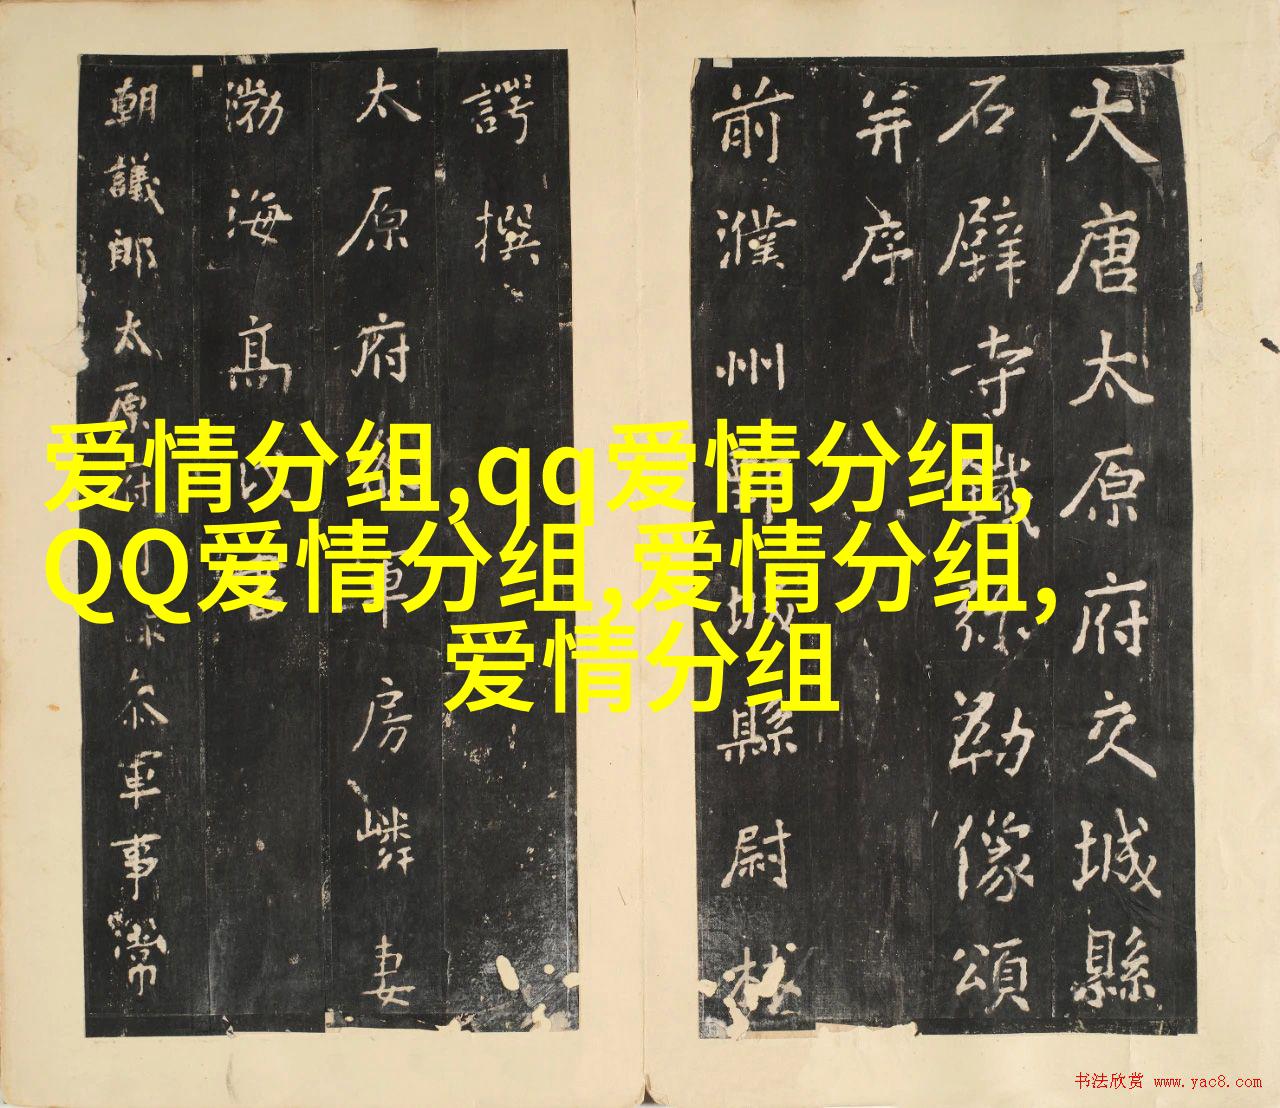 大唐太原府交城縣
石壁寺鐵弥勒像頌
并序
前濮州城縣尉林
諤撰
太原府軍房嶙妻
渤海高書
朝議郎太原府参軍事常
爱情分组,qq爱情分组,
QQ爱情分组,爱情分组,
爱情分组
书法欣赏 www.yac8.com